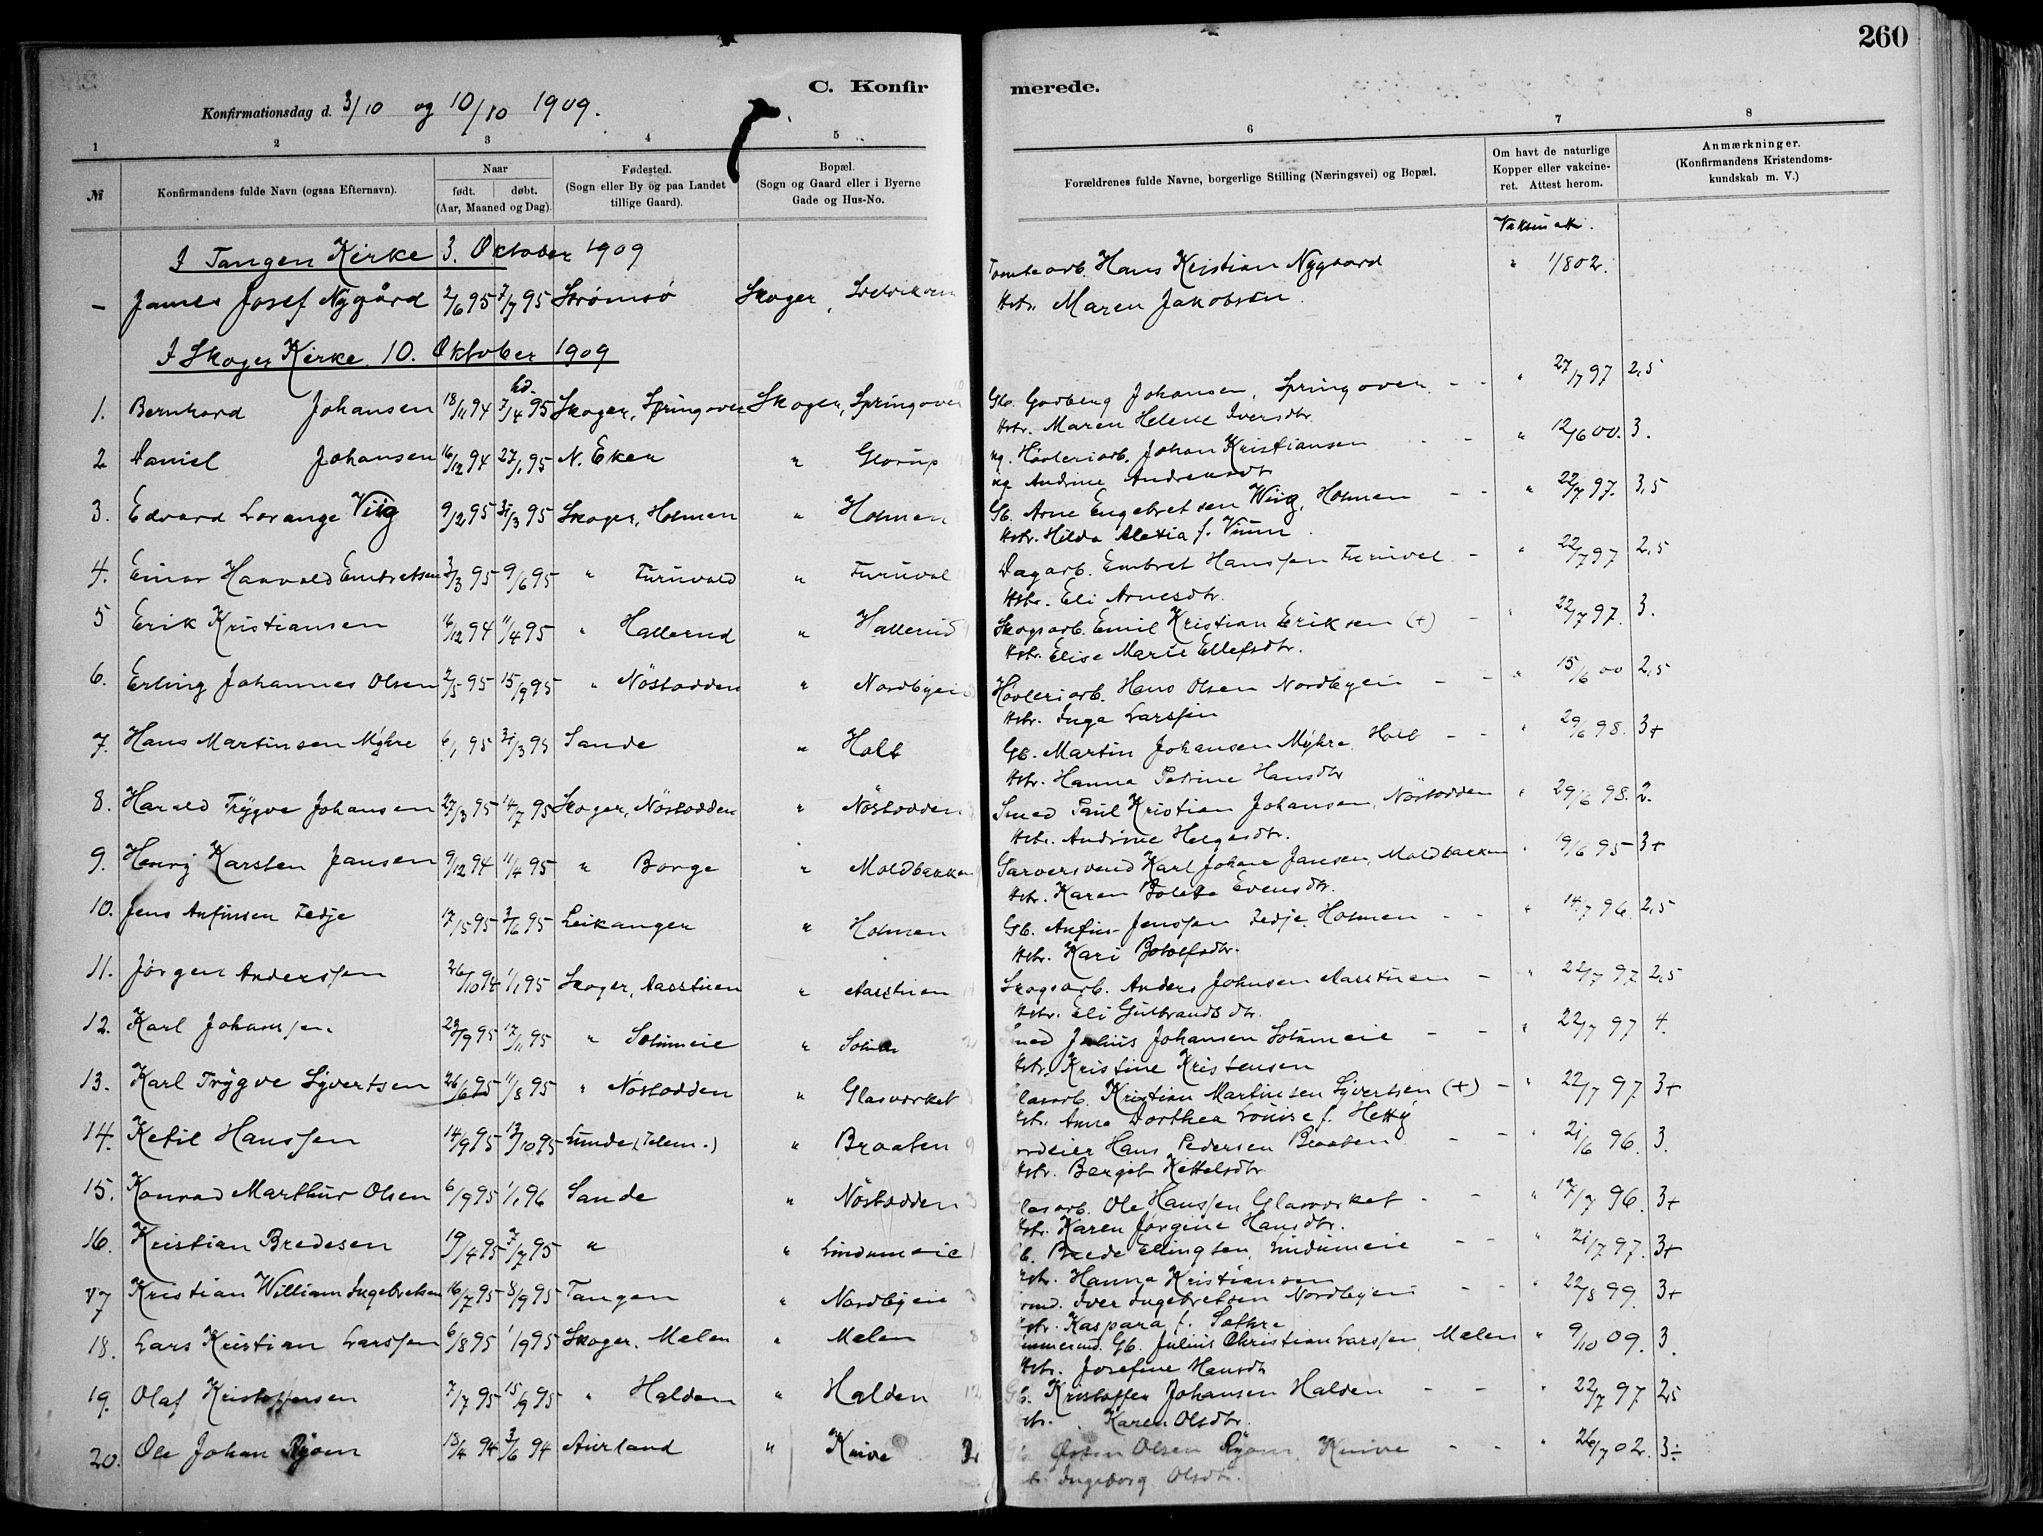 260
C. Konfirmerede.
Konfirmationsdag d. 3/10 og 10/10 1909.
1 2 3 4 5 6 7 8
№ Konfirmandens fulde Navn (ogsaa Efternavn). Naar født. døbt. (Aar, Maaned og Dag). Fødested. (Sogn eller By og paa Landet tillige Gaard). Bopæl. (Sogn og Gaard eller i Byerne Gade og Hus-No. Forældrenes fulde Navne, borgerlige Stilling (Næringsvei) og Bopæl. Om havt de naturlige Kopper eller vakcineret. Attest herom. Anmærkninger. (Konfirmandens Kristendomskundskab m. V.)
I Tangen Kirke 3. Oktober 1909
– James Josef Nygård 2/6 95 7/7 95 Strømsø Skoger, Hans Kristian Nygaard " 1/8 02.
Hstr. Maren Jakobsen
I Skoger Kirke 10. Oktober 1909
1. Bernhard Johansen 18/11 94 hd. 7/4 95 Skoger, Springoven Skoger, Springoven Gb. Godberg Johansen, Springoven – – " 27/7 97 2,5
Hstr. Maren Helene Iversdtr
2 Daniel Johansen 16/12 94 27/1 95 N. Eker " Glorup ug. Høvleriarb. Johan Kristiansen – " 12/6 00. 3.
ug Andrine Andreasdtr
3. Edvard Lorange Viig 9/12 95 31/3 95 Skoger, Holmen " Holmen Gb. Arne Engebretsen Wiig, Holmen – – " 22/7 97. 3,5
Hstr. Hilda Alexia f. Vium
4. Einar Haavald Embretsen 3/3 95 9/6 95 " Furuvald " Furuval Dagarb. Embret Hanssen Furuval – " 22/7 97 2,5
Hstr. Eli Arnesdtr.
5 Erik Kristiansen 16/12 94 11/4 95 " Hallerud " Hallerud Skogsarb. Emil Kristian Eriksen (+) – " 22/7 97. 3.
Hstr. Elise Marie Ellefsdtr.
6. Erling Johannes Olsen 2/5 95 15/9 95 " Nöstodden " Nordbyei Høvleriarb. Hans Olsen Nordbyein – – " 15/6 00 2,5
Hstr. Inga Larssen
7. Hans Martinsen Myhre 6/1 95 31/3 95 Sande " Holt Gb. Martin Johansen Myhre, Holt – – " 29/6 98. 3+
Hstr. Hanna Petrine Hansdtr
8. Harald Trygve Johansen 27/3 95 14/7 95 Skoger, Nöstodden " Nöstodden Smed Paul Kristian Johansen, Nöstodden " 29/6 98. 2.
Hstr. Andrine Helgesdtr.
9. Henry Karsten Jansen 9/12 94 11/4 95 " Borge " Moldbakken Garversvend Karl Johan Jansen, Moldbakken " 19/6 95 3+
Hstr. Karen Bolette Evensdtr.
10. Jens Anfinsen Tedje 17/1 95 3/6 95 Leikanger " Holmen Gb. Anfin Jenssen Tedje, Holmen – – " 14/7 96. 2,5
Hstr. Kari Botolfsdtr.
11. Jørgen Anderssen 26/10 94 1/1 95 Skoger, Aasstuen " Aasstuen Skogsarb. Anders Johnsen Aasstuen – " 22/7 97. 2,5
Hstr. Eli Gulbrandsdtr.
12. Karl Johanssen 23/9 95 17/11 95 " Solumeie " Solum Smed Julius Johansen Solumeie – – " 22/7 97 4.
Hstr. Kristine Kristensen
13. Karl Trygve Syvertsen 26/6 95 11/8 95 " Nöstodden " Glasverket Glasarb. Kristian Martinsen Syvertsen (+) – " 22/7 97. 3+
Hstr. Anna Dorthea Louise f. Hetty
14. Ketil Hanssen 14/9 95 13/10 95 Lunde (Telem.) " Braaten Hans Pedersen Braaten – – " 21/6 96. 3.
Hstr. Bergit Kettelsdtr.
15. Konrad Marthur Olsen 6/9 95 1/1 96 Sande " Nöstodden Glasarb. Ole Hanssen Glasverket – – " 17/7 96. 3+
Hstr. Karen Jørgine Hansdtr.
16. Kristian Bredesen 19/4 95 7/7 95 " " Lindumeie Gb. Brede Ellingsen, Lindumeie – – " 21/7 97. 3+
Hstr. Hanna Kristiansen
17 Kristian William Ingebretsen 16/7 95 8/9 95 Tangen " Nordbyeie Iver Ingebretsen Nordbyein – – " 22/8 99. 3+
Hstr. Kaspara f. Sethre
18. Lars Kristian Larssen 6/8 95 1/9 95 Skoger, Melen " Melen Gb. Julius Christian Larssen, Melen " 9/10 09. 3.
Hstr. Josefine Hansdtr
19. Olaf Kristoffersen 7/7 95 15/9 95 " Halden " Halden Gb. Kristoffer Johansen Halden – – " 22/7 97 2,5
Hstr. Karen Olsdtr.
20. Ole Johan Ryom 18/4 94 3/6 94 Aurland " Knive Gb. Østen Olsen Ryom, Knive – – " 26/7 02. 3÷
Hstr. Ingeborg Olsdtr.